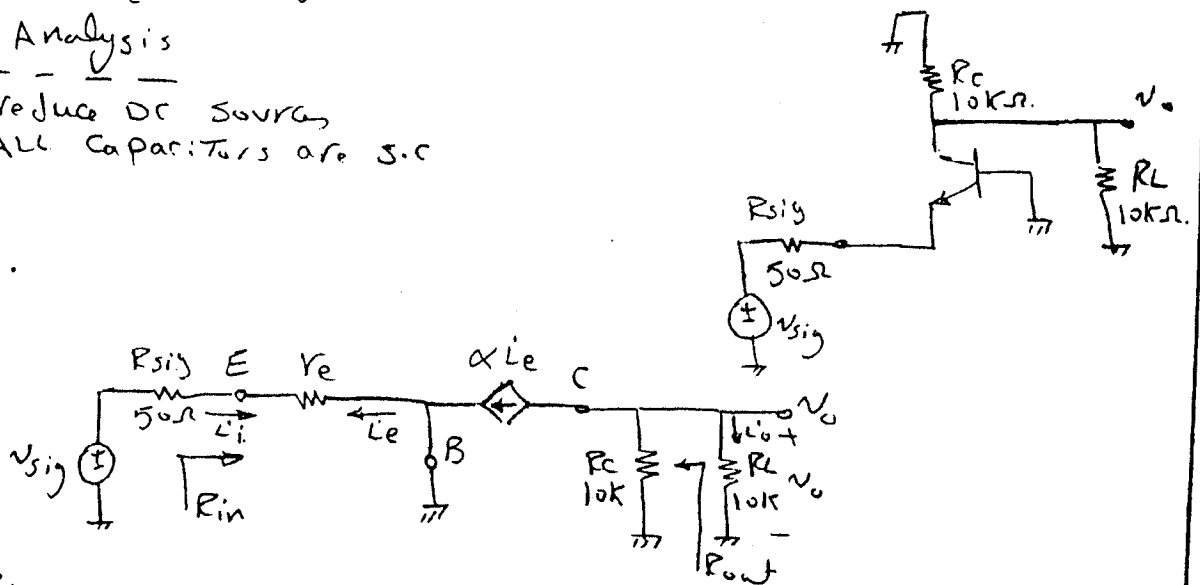 Analysis
reduce DC Sources
ALL Capacitors are s.c
Rc
10KΩ.
vo
RL
10KΩ.
Rsig
50Ω
vsig
Rsig E re
αie C
vo
50Ω ii
ie
B
vsig
Rin
Rc
10K
io +
RL
10K
vo
-
Rout